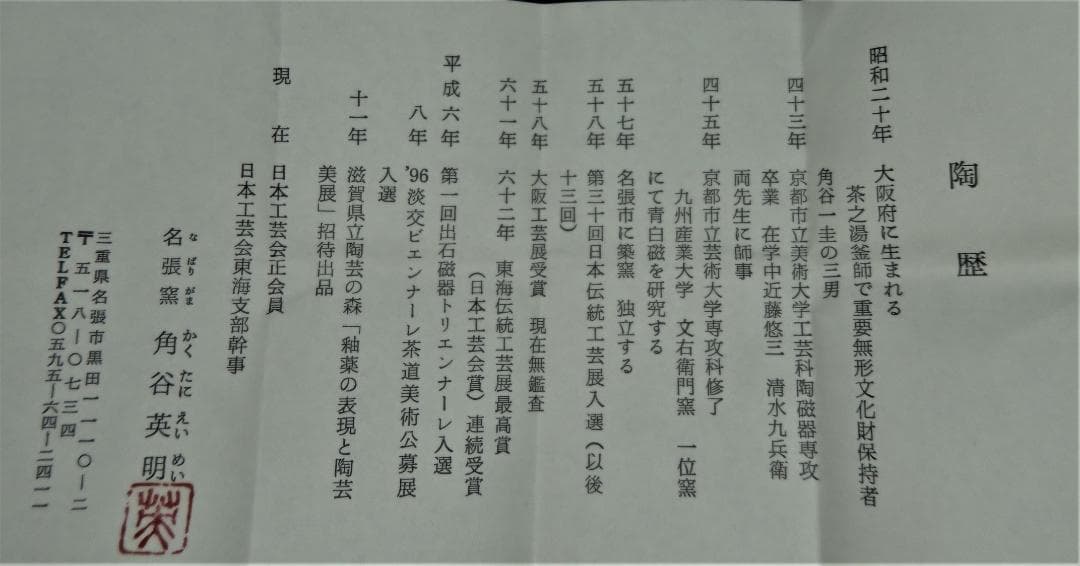 陶歴
昭和二十年　大阪府に生まれる
茶之湯釜師で重要無形文化財保持者
角谷一圭の三男
四十三年　京都市立美術大学工芸科陶磁器専攻
卒業　在学中近藤悠三　清水九兵衛
両先生に師事
四十五年　京都市立芸術大学専攻科修了
九州産業大学　文右衛門窯　一位窯
にて青白磁を研究する
五十七年　名張市に築窯　独立する
五十八年　第三十回日本伝統工芸展入選（以後
十三回）
五十八年　大阪工芸展受賞　現在無鑑査
六十一年　六十二年　東海伝統工芸展最高賞
（日本工芸会賞）連続受賞
平成六年　第一回出石磁器トリエンナーレ入選
八年　'96淡交ビエンナーレ茶道美術公募展
入選
十一年　滋賀県立陶芸の森「釉薬の表現と陶芸
美展」招待出品
現在　日本工芸会正会員
日本工芸会東海支部幹事
名張窯　角谷英明
なばりがま　かくたにえいめい
英
三重県名張市黒田一一一〇－二
〒五一八－〇七三四
TELFAX〇五九五－六四－二四一一